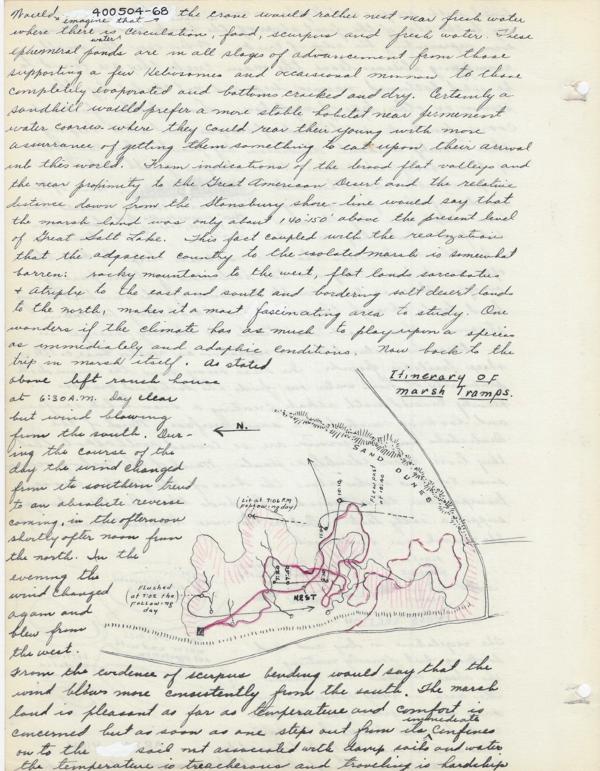 400504-68
Would imagine that the crane would rather nest near fresh water
where there is water circulation, food, scirpus and fresh water. These
ephemeral ponds are in all stages of advancement from those
supporting a few and occasional minnow to those
completely evaporated and bottoms cracked and dry. Certainly a
sandhill would prefer a more stable habitat near permenent
water courses where they could rear their young with more
assurance of getting them something to eat upon their arrival
into this world. From indications of the broad flat valleys and
the near proximity to the Great American Desert and the relative
distance down from the Stansbury shore-line would say that
the marsh land was only about 140'-150' above the present level
of Great Salt Lake. This fact coupled with the realization
that the adjacent country to the isolated marsh is somewhat
barren: rocky mountains to the west, flat lands sarcobatus
+ atriplex to the east and south and bordering salt desert lands
to the north, makes it a most fascinating area to study. One
wonders if the climate has as much to play upon a species
as immediately and adaphic conditions. Now back to the
trip in marsh itself. As stated
above left ranch house
at 6:30 A.M. Day clear
but wind blowing
from the south. Dur-
ing the course of the
day the wind changed
from its southern trend
to an absolute reverse
coming, in the afternoon
shortly after noon from
the north. In the
evening the
wind changed
again and
blew from
the west.
Itinerary of
Marsh Tramps.
N.
SAND DUNES
(Lit at 7:02 P.M.
following day)
Flew past
at 10:40
10:10
NEST
Flushed
(at 7:02 the
following
day
From the evidence of scirpus bending would say that the
wind blows more consistently from the south. The marsh
land is pleasant as far as temperature and comfort is
concerned but as soon as one steps out from its immediate confines
on to the soil not associated with damp soils and water
the temperature is treacherous and traveling is hardship